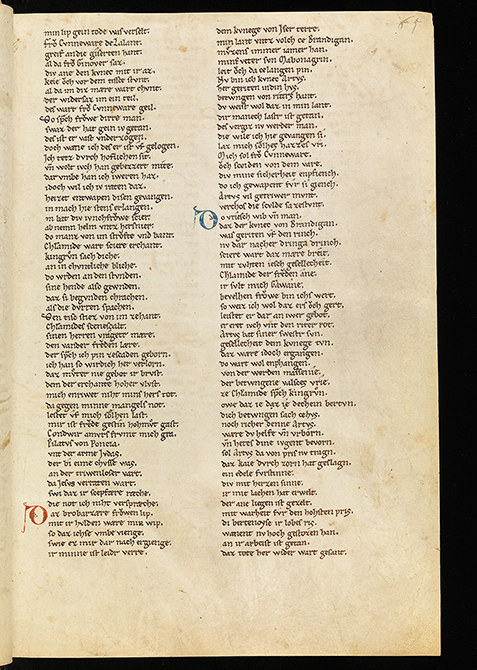 min lip gein tode was verselt.
frŏ Cvnneware de Lalant.
greif an die gisertten hant.
al da frŏ Ginover saz.
div ane den kvnec mit ir az.
keie ŏch vor dem tissce stvnt.
al da im diz mare wart chvnt.
der widersaz im ein teil.
des wart frŏ Cvnneware geil.
Do sp̄ch er frŏwe dirre man.
swaz der hat gein iv getan.
des ist er vast vnderzogen.
doch wæne ich des er ist vf gelogen.
Ich tetz dvrch hoflichen sit.
vn̄ wolt iwch han gebezzert mite.
dar vmbe han ich iweren haz.
idoch wil ich iv raten daz.
heizet entwapen disen gevangen.
in mach hie stens erlangen.
in bat div ivnchfrowe fier.
ab nemn helm vntz hersnier.
do manz von im strŏfte vnd bant.
Clamide wart sciere erchant.
kingrvn sach diche.
an in chvntliche bliche.
do wrden an den stvnden.
sine hende also gewnden.
daz si begvnden chrachen.
als die dvrren spachen.
Den tisc stiez von im zehant.
Chlamides scenescalt.
sinen herren vragete mære.
den vander frŏden lære.
der sp̄ch ich pin zescaden geborn.
ich han so wirdich her verlorn.
daz mvter nie gebot ir brvst.
dem der erchante hoher vlvst.
mich enriwet niht mins hers tot.
da gegen minne mangels not.
lestet vf mich sölhen last.
mir ist frŏde gestin hohmvt gast.
Condwir amvrs frvmt mich gra.
Pilatvs von Poncia.
vnt der arme Ivdas.
der bi eime chvsse was.
an der triwenloser vart.
da Jesvs verraten wart.
swi daz ir scepfare ræche.
die not ich niht verspræche.
Daz Brobarzære frŏwen lip.
mit ir hvlden wære min wip.
so daz ichse vmbe vienge.
swie ez mir dar nach ergienge.
ir minne ist leidr verre.
dem kvnege von Iser terre.
min lant vntz volch ze Brandigan.
mvzens immer iamer han.
mins veter svn Mabonagrin.
leit ŏch da ze langen pin.
Nv bin ich kvnec Artvs.
her geriten in din hvs.
betwngen von ritters hant.
dv weist wol daz in min lant.
dir manech last͛ ist getan.
des vergiz nv werder man.
die wile ich hie gevangen si.
laz mich sölhes hazzes vri.
Mich sol frŏ Cvnneware.
ŏch sceiden von dem vare.
div mine sicherheit enpfiench.
do ich gewapent fvr si giench.
Artvs vil getriwer mvnt.
verchos die scvlde sa zestvnt.
Do vriesch wib vn̄ man.
daz der kvnec von Brandigan.
was geriten vf den rinch.
nv dar naher dringa drinch.
sciere wart daz mære breit.
mit zvhten iesch gesellecheit.
Chlamide der frŏden ane.
ir svlt mich Gawane.
bevelhen frŏwe bin ichs wert.
so weiz ich wol daz ers ŏch gert.
leistet er dar an iwer gebot.
er eret iwch vnt den riter rot.
Artvs bat siner swestr svn.
gesellecheit dem kvnege tvn.
daz ware idoch ergangen.
do wart wol enphangen.
von der werden massenie.
der betwngene valsces vrie.
ze Chlamide sp̄ch kingrvn.
owe daz ie daz ie dechein bertvn.
dich betwngen sach ze hvs.
noch richer denne Artvs.
wære dv helfe vn̄ vrborn.
vn̄ hetes dine ivgent bevorn.
sol Artvs da von pris nv tragn.
daz kaie dvrch zorn hat geslagn.
ein edele fvrstinne.
div mit herzn sinne.
ir mit lachen hat erwelt.
der ane liegen ist gezelt.
mit warheit fvr den hohsten pris.
di bertenoyse ir lobes ris.
wænent nv hoch gestozen han.
an ir arbeit ist getan.
daz tote her wider wart gesant.